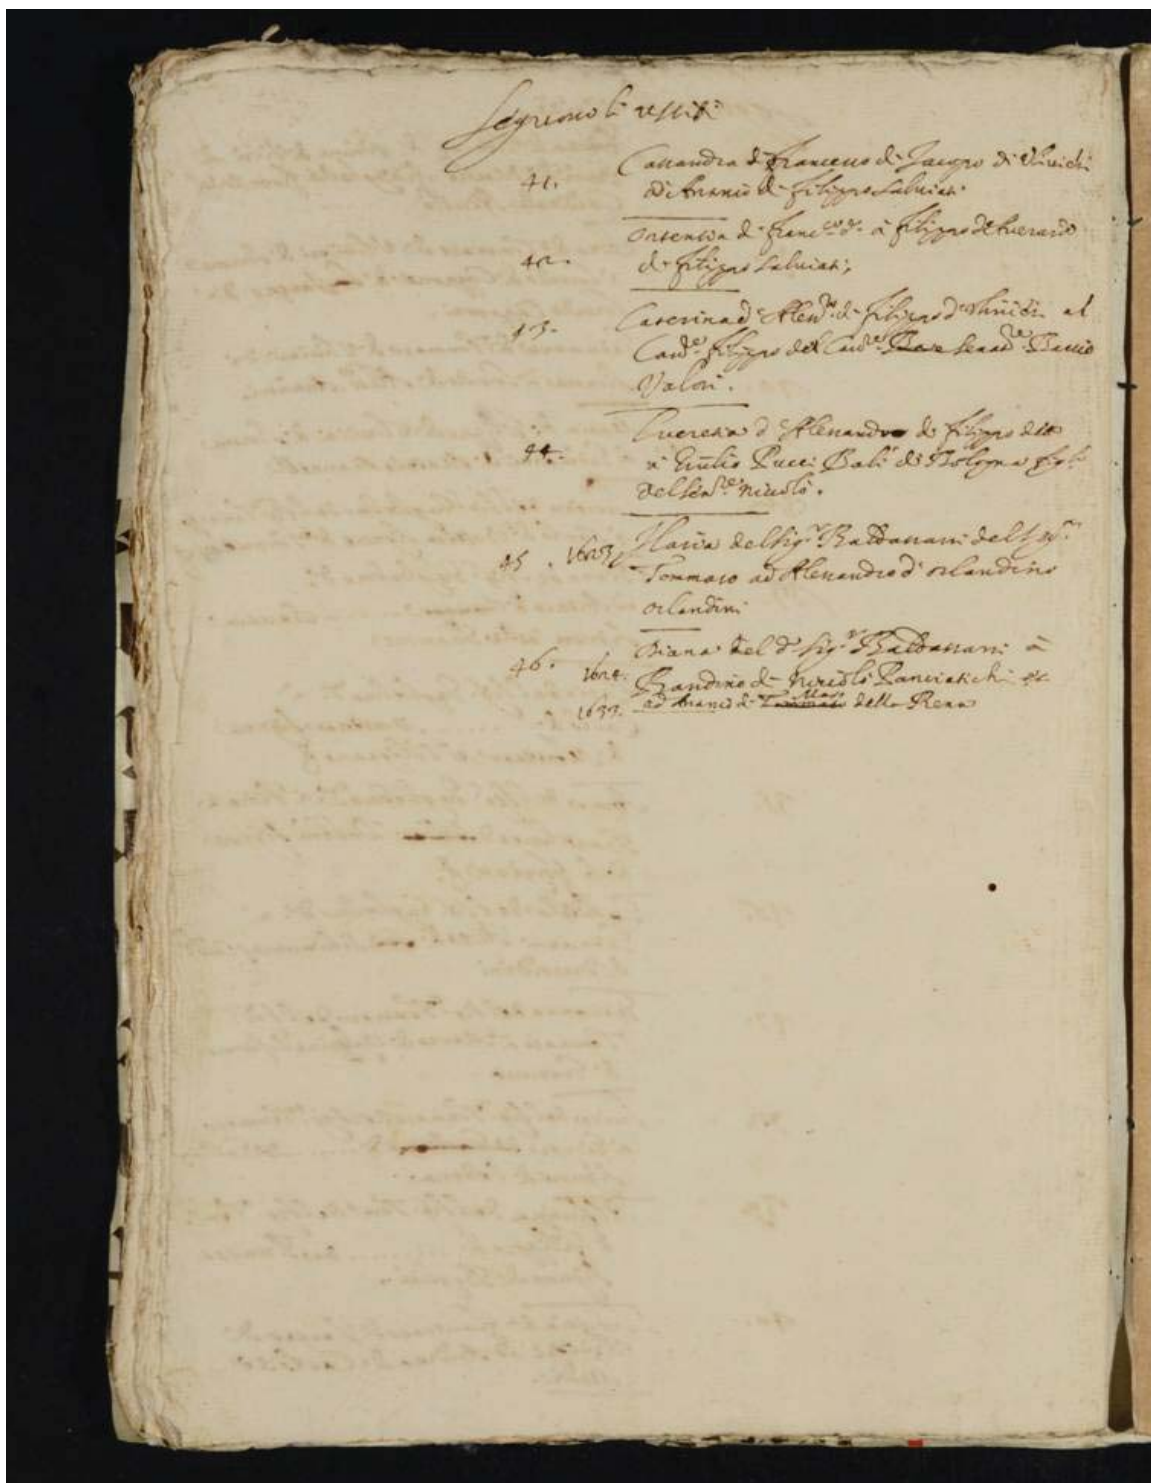 Seguono li vestiti
41. Cassandra di Francesco di Jacopo di Vlivieri
ad Antonio di Filippo Salviati
42. Ortensia di Franc.co d.o à Filippo d'Averardo
di Filippo Salviati,
43. Caterina d'Aless.o di Filippo d'
al
Cav.re Filippo del Cav.re Senat.re Baccio
Valori.
44. Lucretia d'Alessandro di Filippo detto
à Giulio Pucci Balì di Bologna figl.
del Sen.re Niccolò.
45. 1623. Maria del Sig.r Baldassarri del Sig.r
Tommaso ad Alessandro d'Orlandino
Orlandini
46. 1624. Diana del d.o Sig.r Baldassarri à
Bandino di Niccolò Panciatichi et
1633. ad Ananio di Maso della Rena